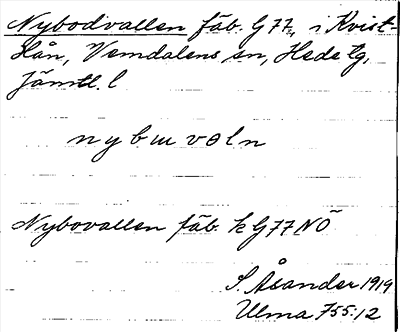 Nybodvallen fäb. G 77, i Kvist-
Hån, Vemdalens sn, Hede tg,
Jämtl. l
n y b ɯ v o l n
Nybovallen fäb. k G 77 NÖ
S. Åsander 1919
Ulma 755:12